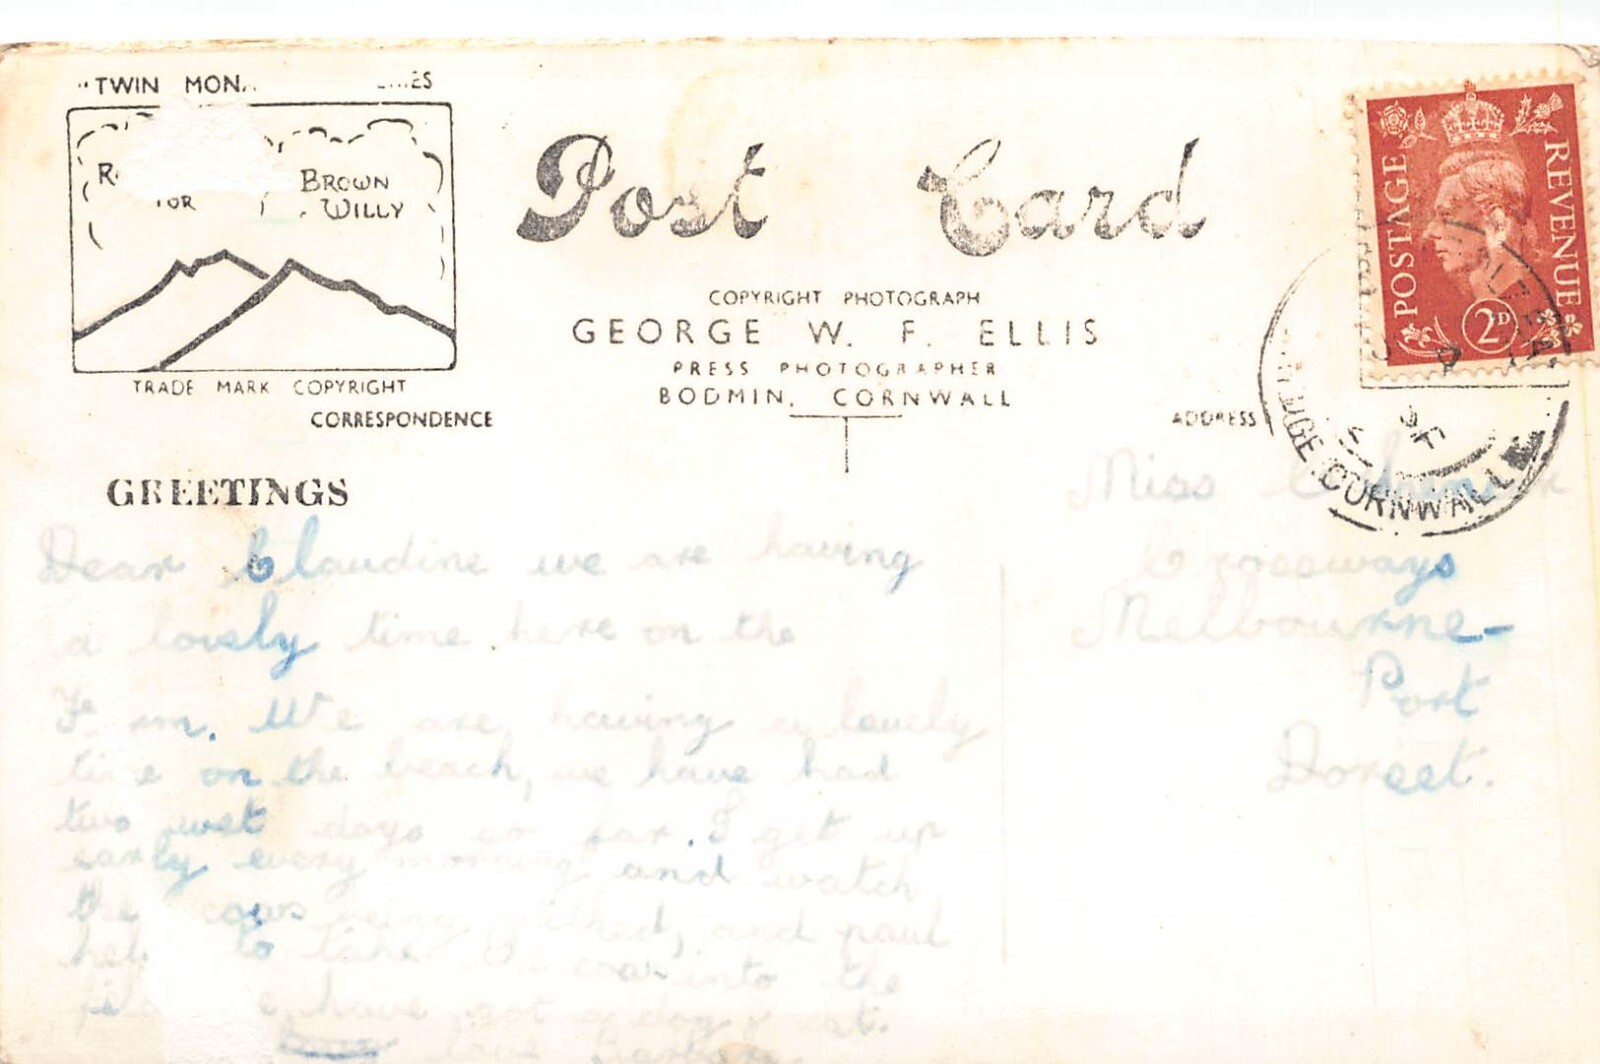 "TWIN
BROWN
TOR WILLY
TRADE MARK COPYRIGHT
Post Card
COPYRIGHT PHOTOGRAPH
GEORGE W. F. ELLIS
PRESS PHOTOGRAPHER
BODMIN, CORNWALL
CORRESPONDENCE
ADDRESS
POSTAGE REVENUE
2D
CORNWALL
GREETINGS
Dear Claudine we are having
a lovely time here on the
We are having a lovely
time on the beach, we have had
two wet days so far. I get up
early every morning and watch
the cows being milked, and paul
to take the cows into the
have got a dog & cat.
love Barbara
Miss
Crossways
Melbourne-
Port
Dorset.